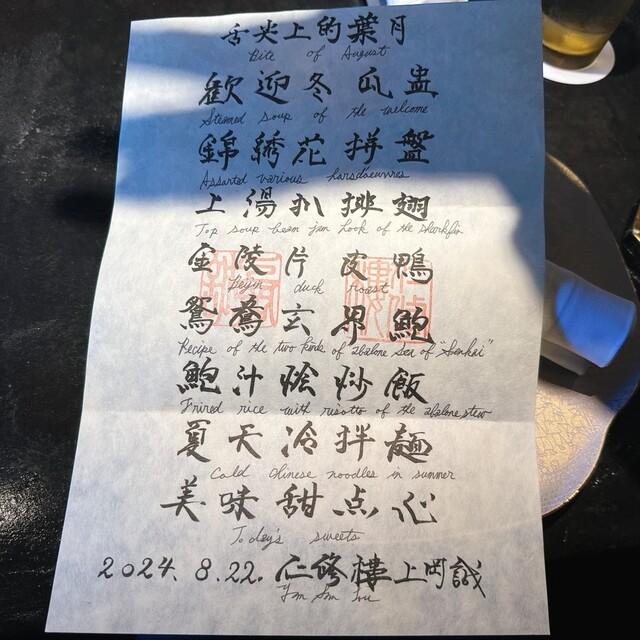 舌尖上的葉月
Bite of August
歓迎冬瓜盅
Steamed soup of the welcome
錦綉花拼盤
Assorted various horsdoeuvres
上湯扒排翅
Top soup bean jam hook of the sharkfin
金陵片皮鴨
Beijin duck roast
鴛鴦玄界鮑
Recipe of the two kinds of abalone sea of "Genkai"
鮑汁燴炒飯
Frired rice with risotto of the abalone stew
夏天冷拌麺
Cold Chinese noodles in summer
美味甜点心
Today's sweets
2024. 8.22. 仁修樓 上岡誠